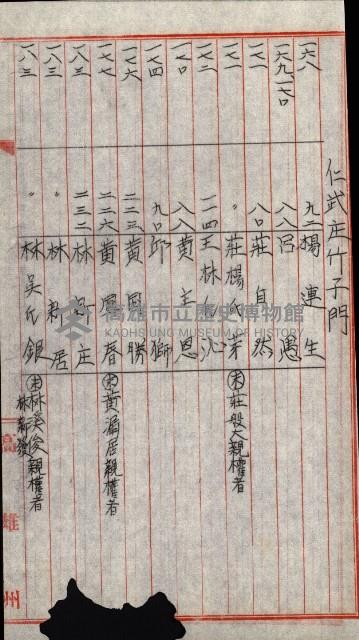 仁武庄竹子門
一六八 九二 楊連生
一六九、一七〇 八八 呂愚
一七一 八〇 莊自然
一七一 〃 莊楊氏芽 未 莊般大親權者
一七二 二四 王林氏沁
一七〇 八八 黃主恩
一七四 九〇 邱獅
一七六 二二三 黃 勝
一七七 二二六 黃 春 未 黃漏居親權者
一八三 二三二 林 庄
一八三 〃 林新居
一八三 〃 林吳氏銀 未 林溪俊親權者
林新發
高雄州
高雄市立歷史博物館
KAOHSIUNG MUSEUM OF HISTORY